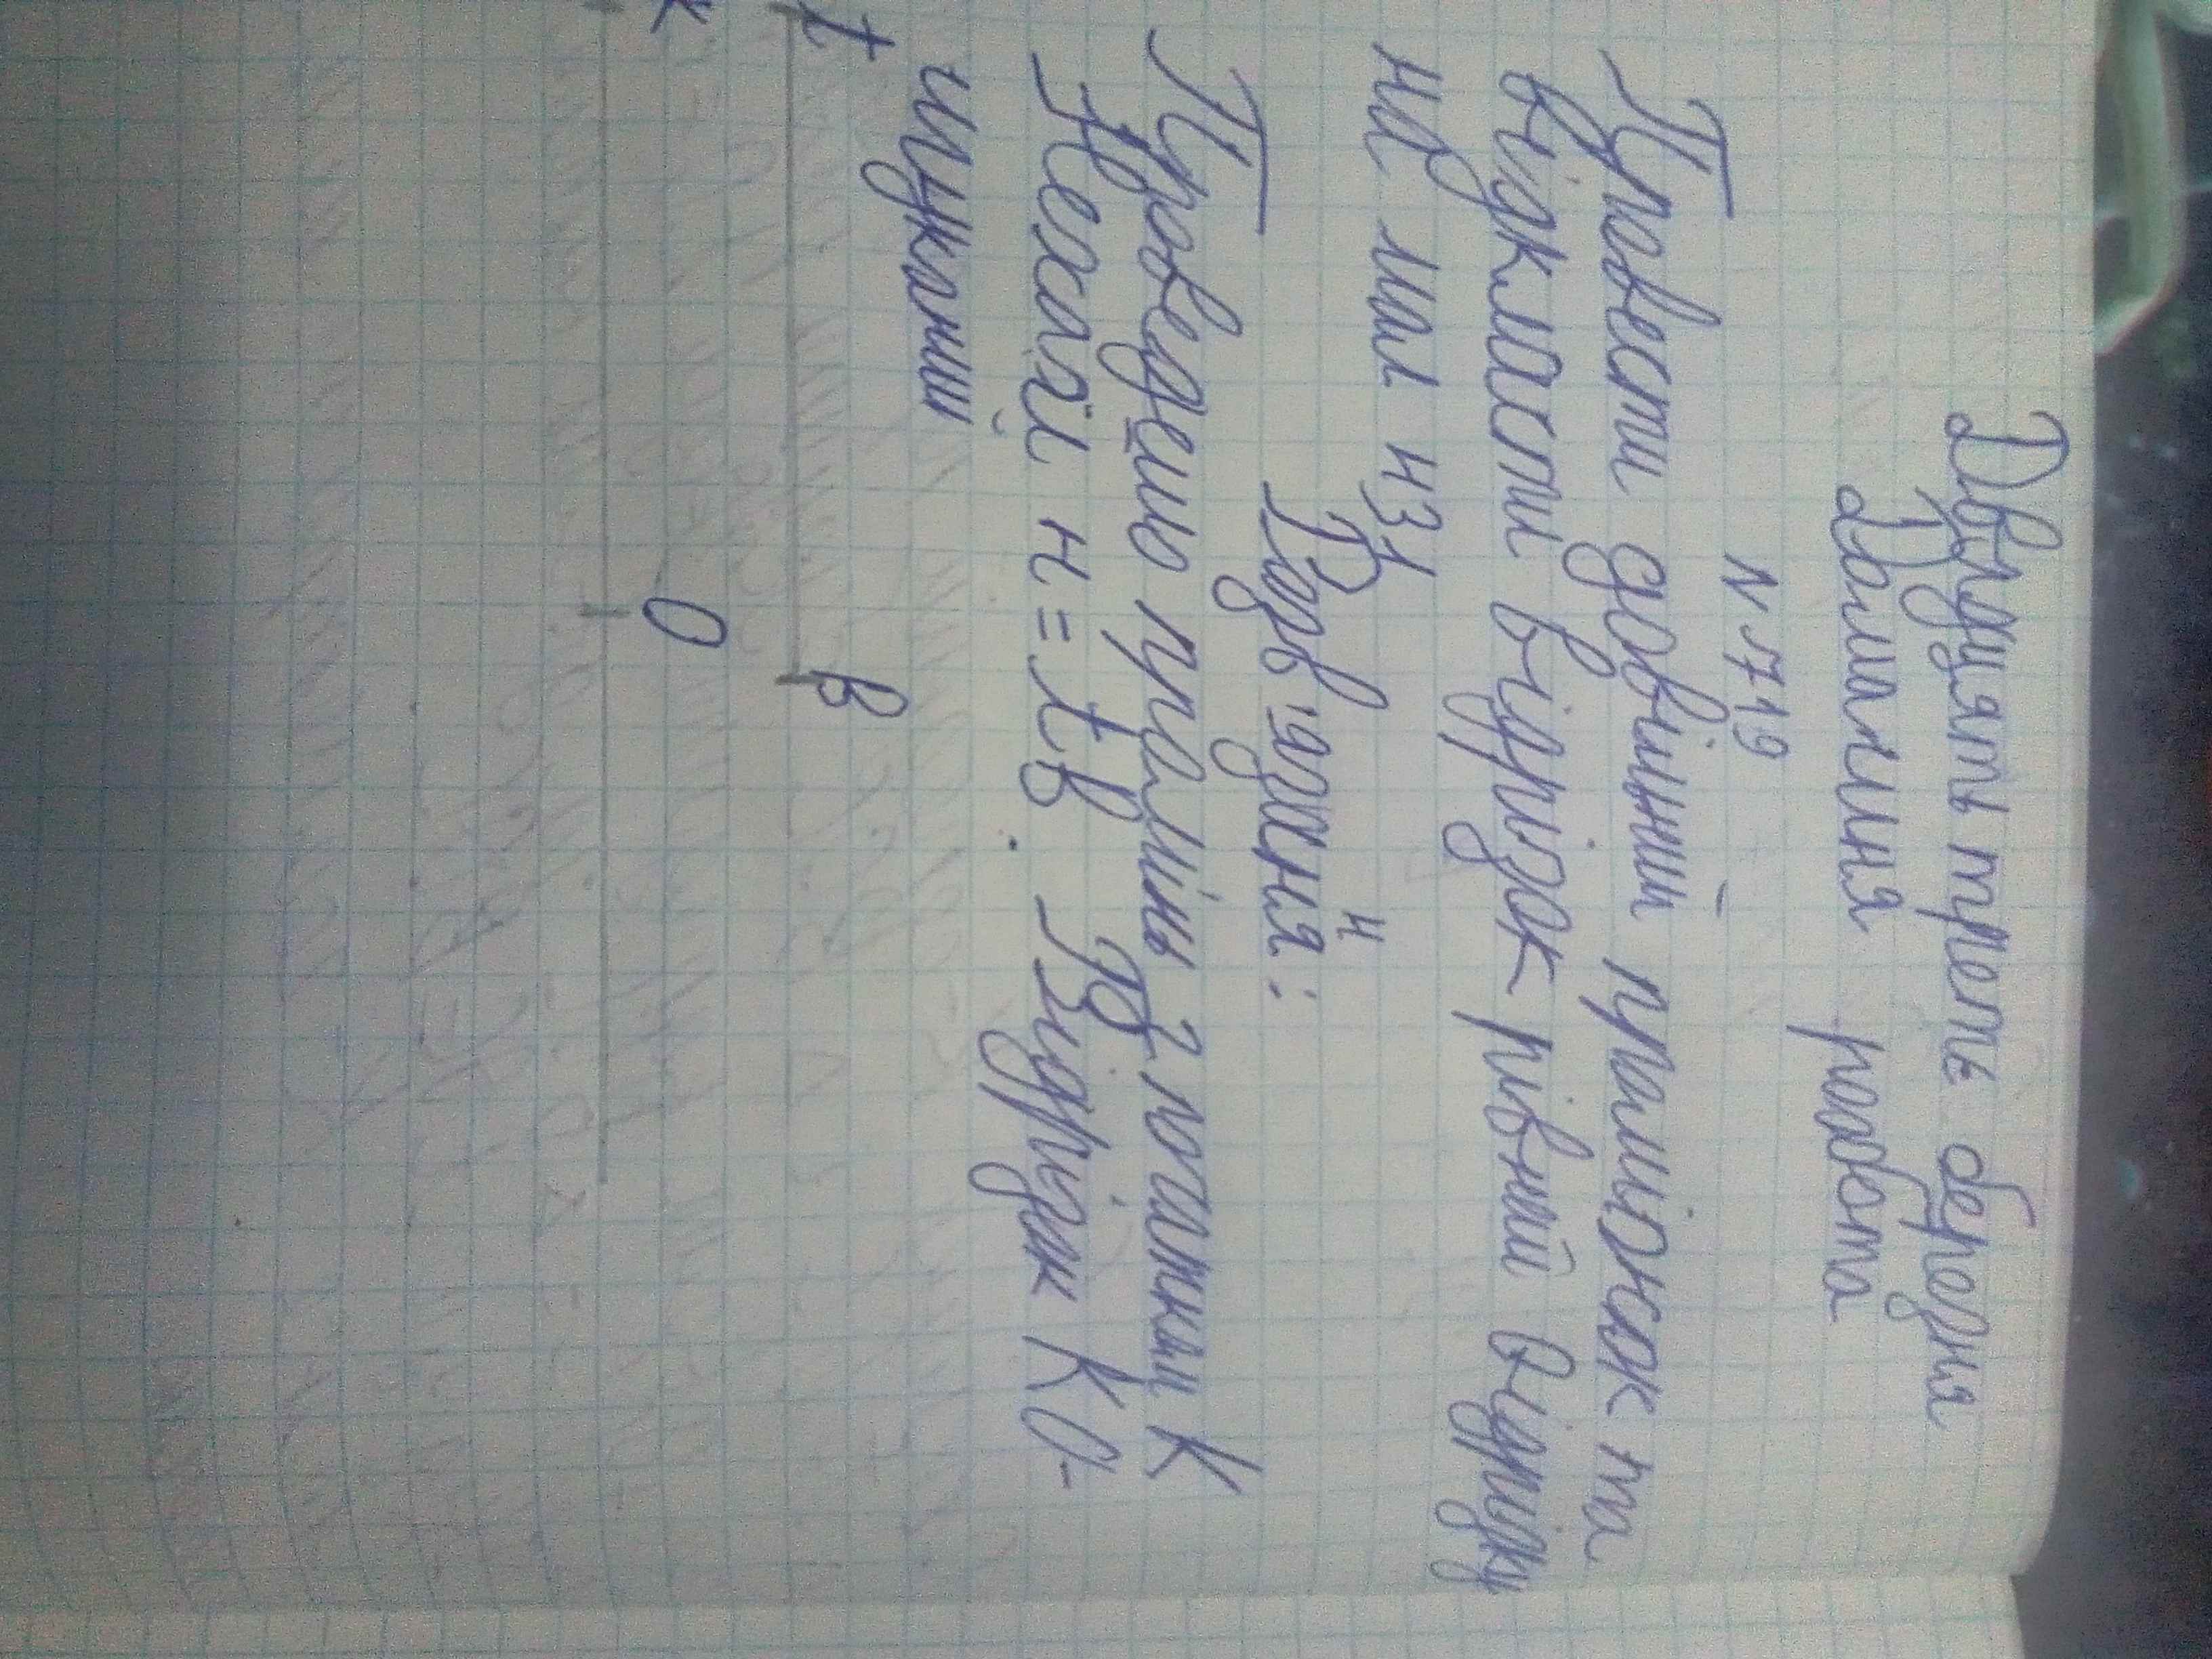 Двадцять третє березня
Домашня робота
N 719
Провести довільний промінок та
відкласти відрізок рівний відрізку
на мал 431
Розв'язання:
н
Проведемо промінь з початком К
Нехай н = tв. Відрізок КО-
шуканий
t в
к О